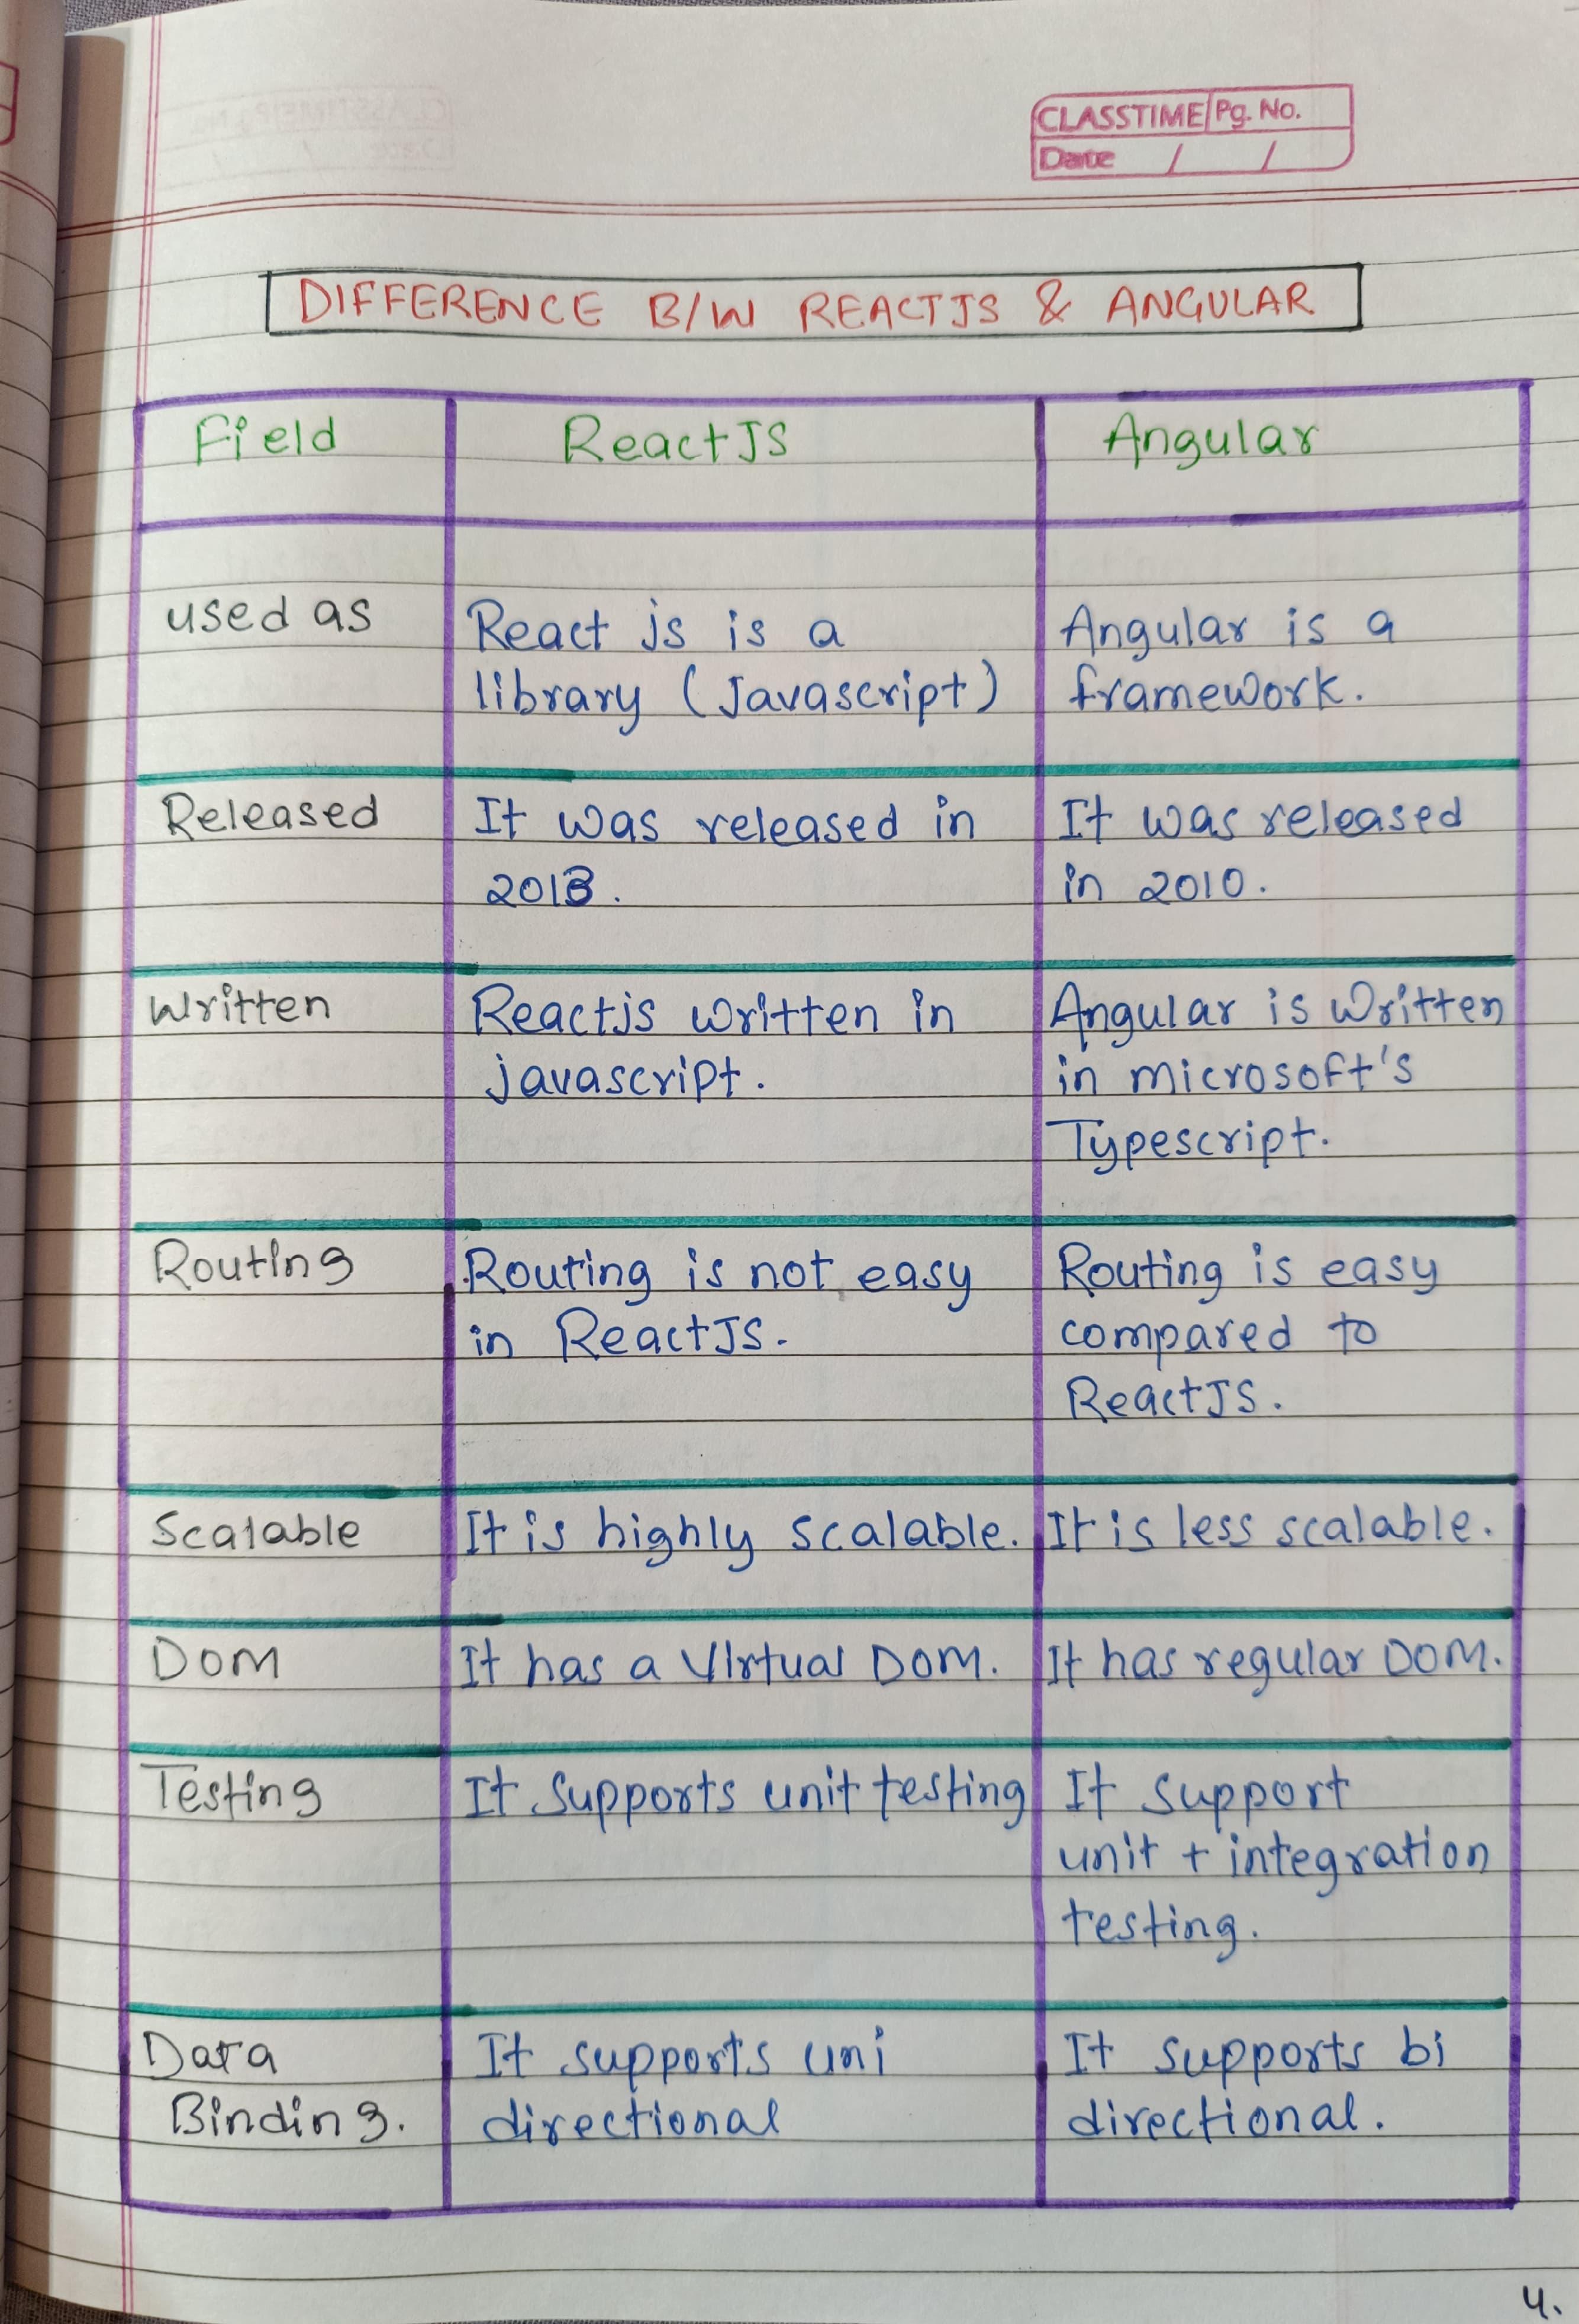 CLASSTIME Pg. No.
Date / /
DIFFERENCE B/W REACTJS & ANGULAR
Field ReactJS Angular
used as React js is a Angular is a
library (Javascript) framework.
Released It was released in It was released
2013. in 2010.
Written Reactjs written in Angular is written
javascript. in microsoft's
Typescript.
Routing Routing is not easy Routing is easy
in ReactJS. compared to
ReactJS.
Scalable It is highly scalable. It is less scalable.
DOM It has a Virtual DOM. It has regular DOM.
Testing It supports unit testing It support
unit + integration
testing.
Data It supports uni It supports bi
Binding. directional directional.
4.